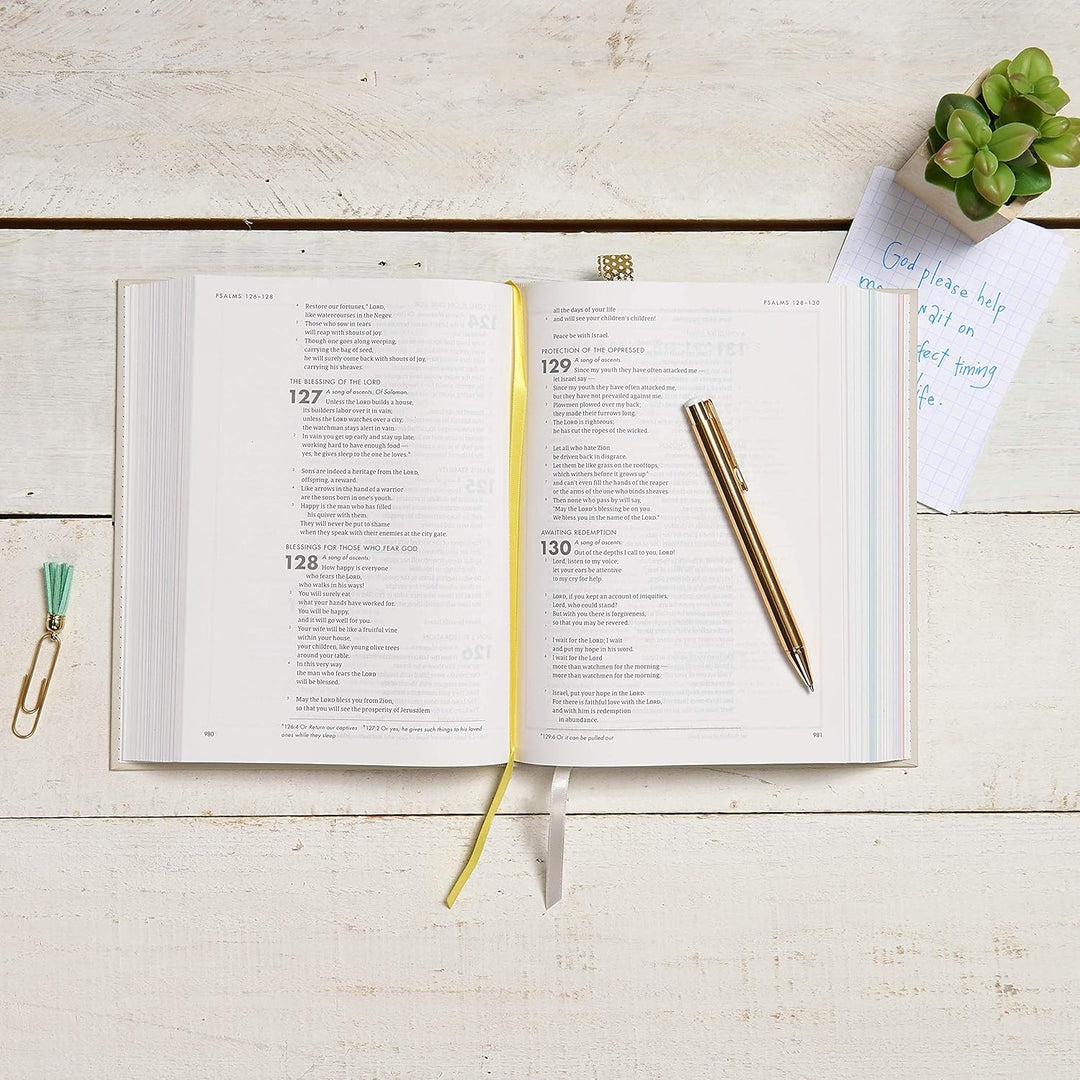 PSALMS 126–128
Restore our fortunes,ᴬ LORD,
like watercourses in the Negev.
5 Those who sow in tears
will reap with shouts of joy.
6 Though one goes along weeping,
carrying the bag of seed,
he will surely come back with shouts of joy,
carrying his sheaves.
THE BLESSING OF THE LORD
127 A song of ascents. Of Solomon.
Unless the LORD builds a house,
its builders labor over it in vain;
unless the LORD watches over a city,
the watchman stays alert in vain.
2 In vain you get up early and stay up late,
working hard to have enough food —
yes, he gives sleep to the one he loves.ᴮ
3 Sons are indeed a heritage from the LORD,
offspring, a reward.
4 Like arrows in the hand of a warrior
are the sons born in one's youth.
5 Happy is the man who has filled
his quiver with them.
They will never be put to shame
when they speak with their enemies at the city gate.
BLESSINGS FOR THOSE WHO FEAR GOD
128 A song of ascents.
How happy is everyone
who fears the LORD,
who walks in his ways!
2 You will surely eat
what your hands have worked for.
You will be happy,
and it will go well for you.
3 Your wife will be like a fruitful vine
within your house,
your children, like young olive trees
around your table.
4 In this very way
the man who fears the LORD
will be blessed.
5 May the LORD bless you from Zion,
so that you will see the prosperity of Jerusalem
ᴬ126:4 Or Return our captives ᴮ127:2 Or yes, he gives such things to his loved
ones while they sleep
980
PSALMS 128–130
all the days of your life
6 and will see your children's children!
Peace be with Israel.
PROTECTION OF THE OPPRESSED
129 A song of ascents.
Since my youth they have often attacked me —
let Israel say —
2 Since my youth they have often attacked me,
but they have not prevailed against me.
3 Plowmen plowed over my back;
they made their furrows long.
4 The LORD is righteous;
he has cut the ropes of the wicked.
5 Let all who hate Zion
be driven back in disgrace.
6 Let them be like grass on the rooftops,
which withers before it grows upᴬ
7 and can't even fill the hands of the reaper
or the arms of the one who binds sheaves.
8 Then none who pass by will say,
"May the LORD's blessing be on you.
We bless you in the name of the LORD."
AWAITING REDEMPTION
130 A song of ascents.
Out of the depths I call to you, LORD!
2 Lord, listen to my voice;
let your ears be attentive
to my cry for help.
3 LORD, if you kept an account of iniquities,
Lord, who could stand?
4 But with you there is forgiveness,
so that you may be revered.
5 I wait for the LORD; I wait
and put my hope in his word.
6 I wait for the Lord
more than watchmen for the morning —
more than watchmen for the morning.
7 Israel, put your hope in the LORD.
For there is faithful love with the LORD,
and with him is redemption
in abundance.
ᴬ129:6 Or it can be pulled out
981
God please help
wait on
timing